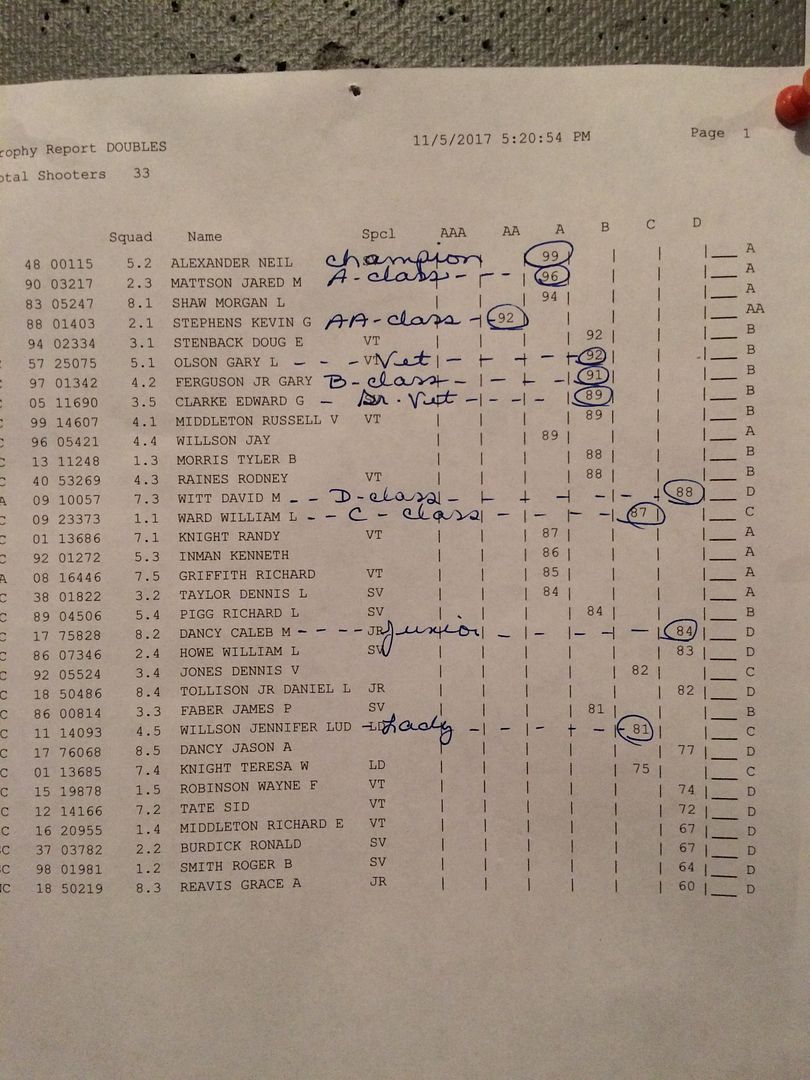 rophy Report DOUBLES 11/5/2017 5:20:54 PM Page 1
otal Shooters 33
Squad Name Spcl AAA AA A B C D
48 00115 5.2 ALEXANDER NEIL champion 99 | | | |___ A
90 03217 2.3 MATTSON JARED M A-class - - - 96 | | | |___ A
83 05247 8.1 SHAW MORGAN L | | | 94 | | | |___ A
88 01403 2.1 STEPHENS KEVIN G AA-class - 92 | | | | |___ AA
94 02334 3.1 STENBACK DOUG E VT | | | | 92 | | |___ B
C 57 25075 5.1 OLSON GARY L - - - VT Vet | - | - | - | - 92 | | |___ B
C 97 01342 4.2 FERGUSON JR GARY B-class - | - | - | - | 91 | | |___ B
C 05 11690 3.5 CLARKE EDWARD G - Sr. Vet - | - | - | - | 89 | | |___ B
C 99 14607 4.1 MIDDLETON RUSSELL V VT | | | | 89 | | |___ B
C 96 05421 4.4 WILLSON JAY | | | 89 | | | |___ A
C 13 11248 1.3 MORRIS TYLER B | | | | 88 | | |___ B
C 40 53269 4.3 RAINES RODNEY VT | | | | 88 | | |___ B
A 09 10057 7.3 WITT DAVID M - - D-class | - | - | - | - | - | 88 |___ D
C 09 23373 1.1 WARD WILLIAM L - - C - class | - | - | - | - 87 | |___ C
C 01 13686 7.1 KNIGHT RANDY VT | | | 87 | | | |___ A
C 92 01272 5.3 INMAN KENNETH | | | 86 | | | |___ A
A 08 16446 7.5 GRIFFITH RICHARD VT | | | 85 | | | |___ A
C 38 01822 3.2 TAYLOR DENNIS L SV | | | 84 | | | |___ A
C 89 04506 5.4 PIGG RICHARD L SV | | | | 84 | | |___ B
C 17 75828 8.2 DANCY CALEB M - - - - JR Junior | - | - | - | - | - 84 |___ D
C 86 07346 2.4 HOWE WILLIAM L SV | | | | | | 83 |___ D
C 92 05524 3.4 JONES DENNIS V | | | | | 82 | |___ C
C 18 50486 8.4 TOLLISON JR DANIEL L JR | | | | | | 82 |___ D
C 86 00814 3.3 FABER JAMES P SV | | | | 81 | | |___ B
C 11 14093 4.5 WILLSON JENNIFER LUD - LD Lady - | - | - | - | - 81 | |___ C
C 17 76068 8.5 DANCY JASON A | | | | | | 77 |___ D
C 01 13685 7.4 KNIGHT TERESA W LD | | | | | 75 | |___ C
C 15 19878 1.5 ROBINSON WAYNE F VT | | | | | | 74 |___ D
C 12 14166 7.2 TATE SID VT | | | | | | 72 |___ D
C 16 20955 1.4 MIDDLETON RICHARD E VT | | | | | | 67 |___ D
C 37 03782 2.2 BURDICK RONALD SV | | | | | | 67 |___ D
C 98 01981 1.2 SMITH ROGER B SV | | | | | | 64 |___ D
C 18 50219 8.3 REAVIS GRACE A JR | | | | | | 60 |___ D